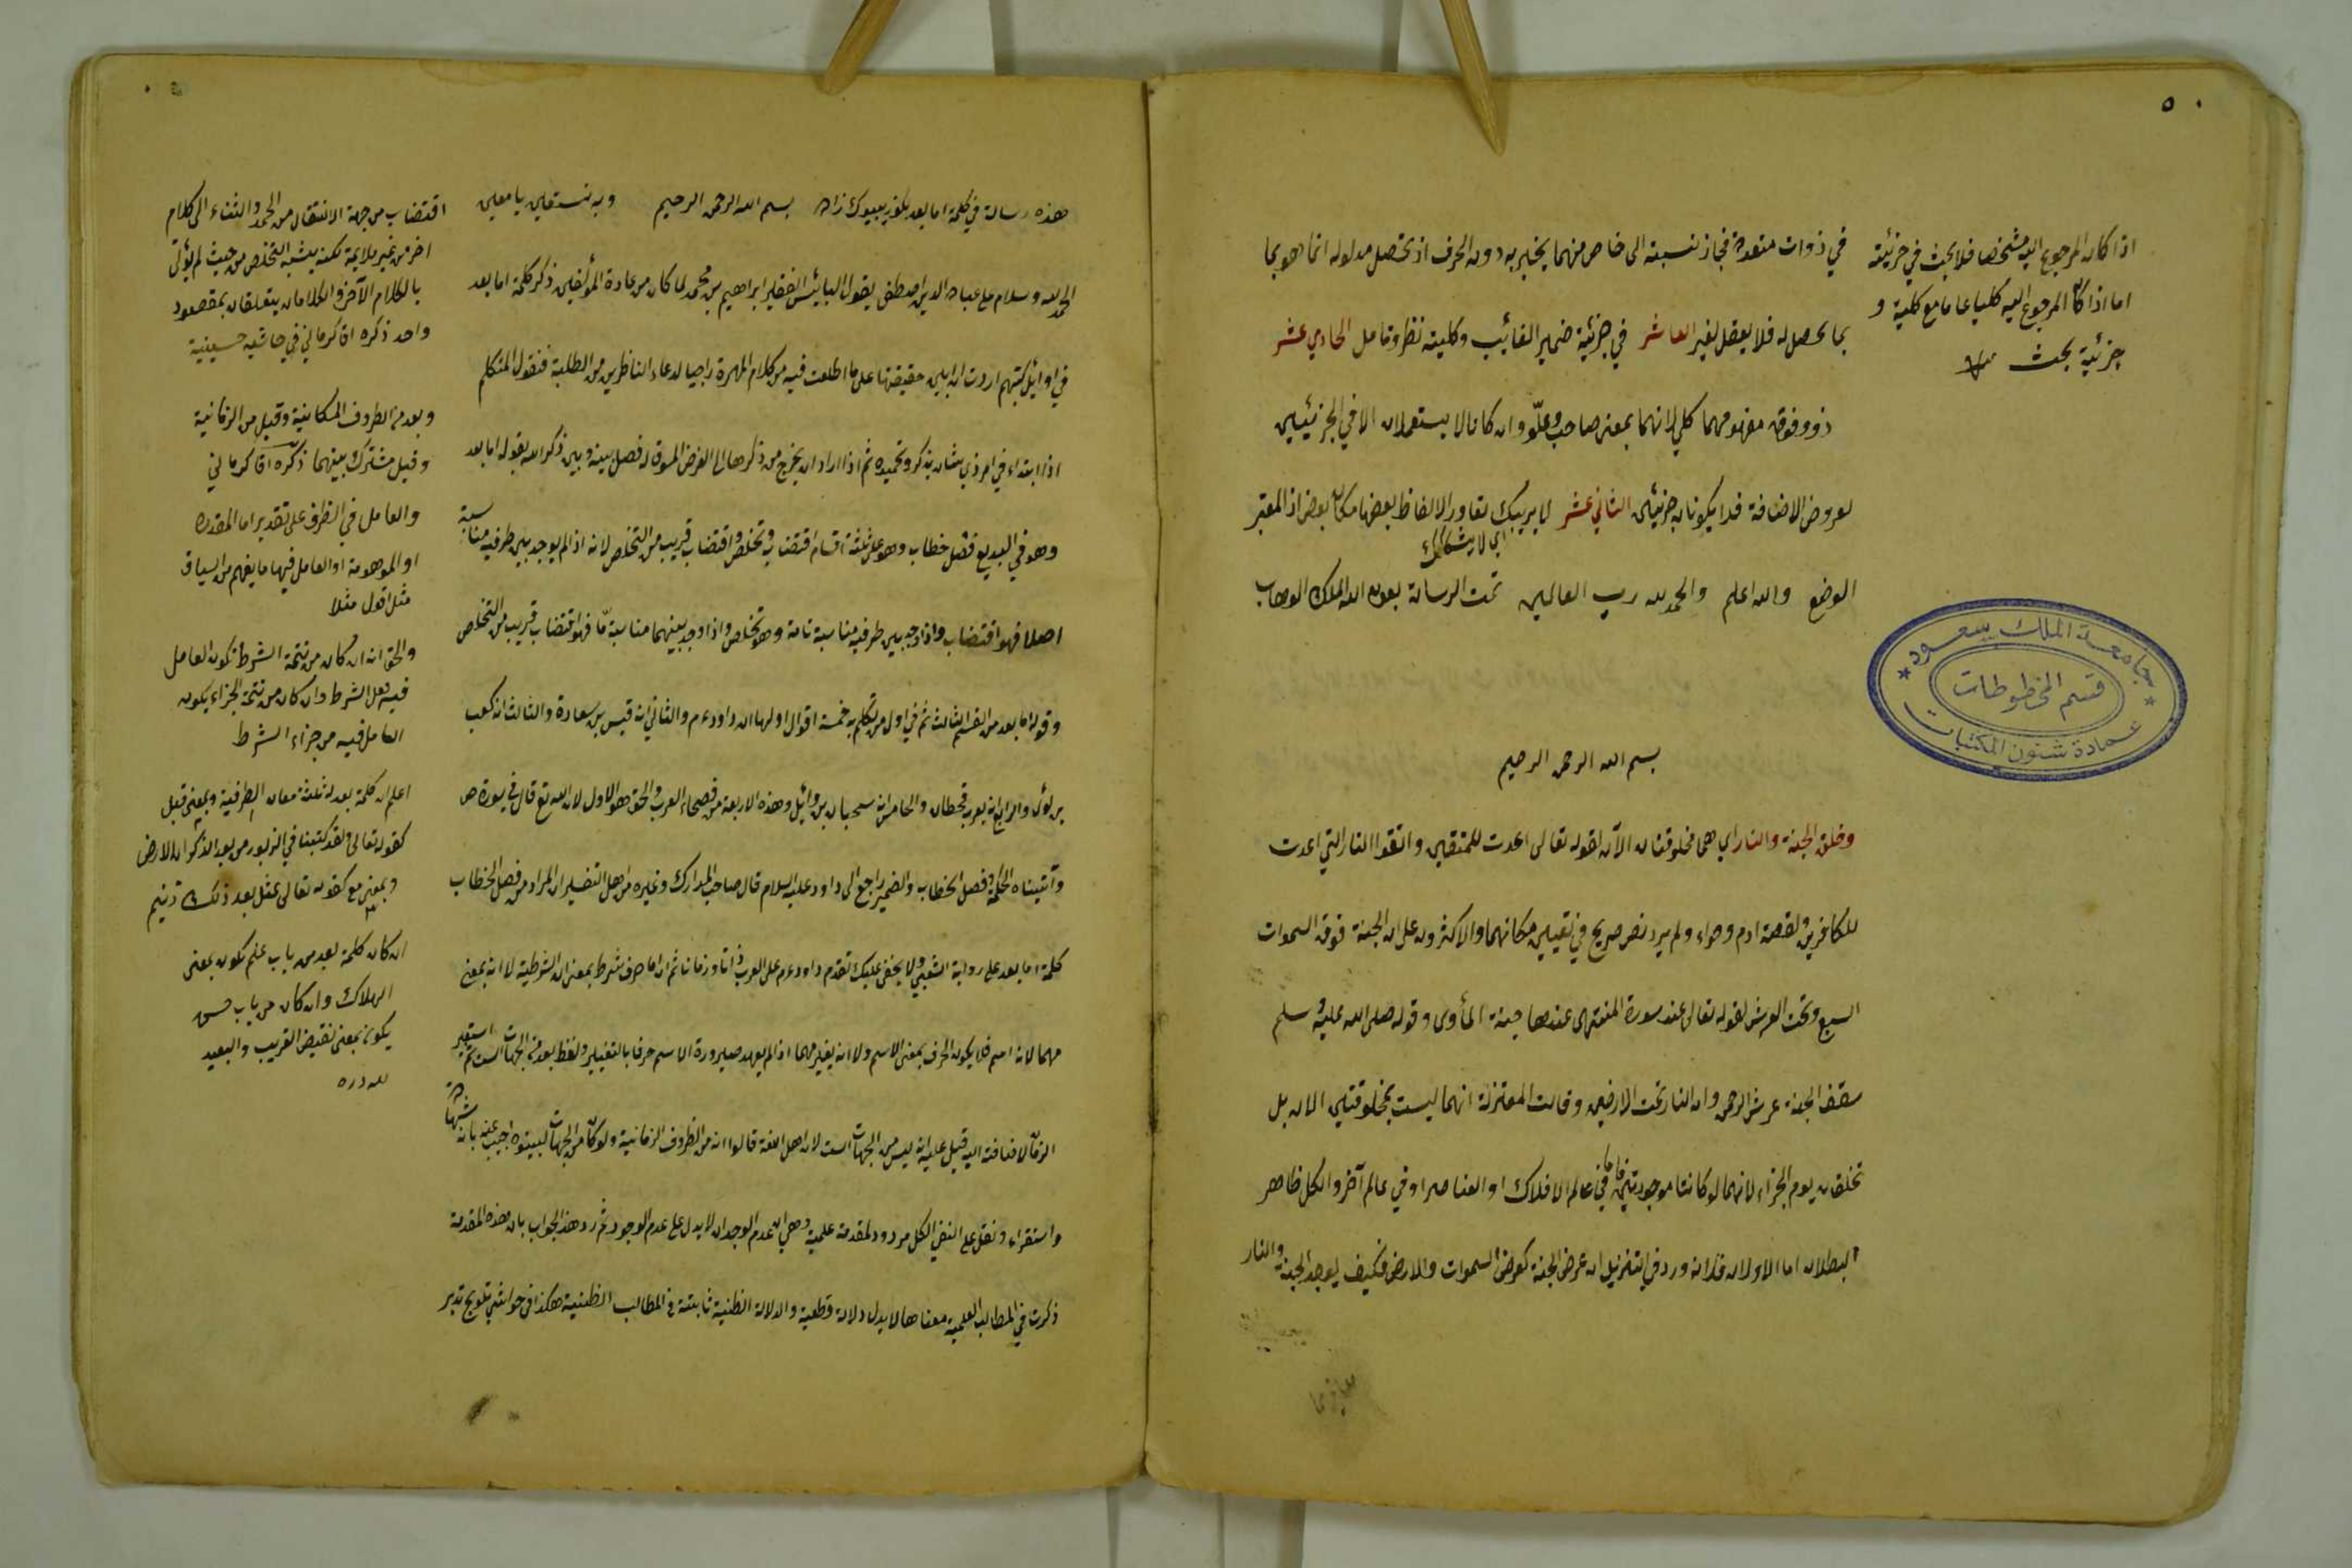 ٥٠
في ذوات متعددة فجاز نسبته الى خاص منهما يخبر به دون الحرف اذ تحصل مدلوله انما هو بما
يحصل له فلا يعقل لغير العاشر في جزئية ضمير الغائب وكليته نظر وتامل الحادي عشر
ذو وفوق مفهومهما كلي لانهما بمعنى صاحب وعلو وان كانا لا يستعملان الا في الجزئيين
لعروض الاضافة فلا يكونان جزئيين الثاني عشر لا يريبك تعاور الالفاظ بعضها مكان بعض اذ المعتبر
اي لا يشكك
الوضع والله اعلم والحمد لله رب العالمين تمت الرسالة بعون الله الملك الوهاب
بسم الله الرحمن الرحيم
وخلق الجنة والنار اي هما مخلوقتان الآن لقوله تعالى اعدت للمتقين واتقوا النار التي اعدت
للكافرين ولقصة ادم وحواء ولم يرد نص صريح في تعيين مكانهما والاكثرون على ان الجنة فوق السموات
السبع وتحت العرش لقوله تعالى عند سدرة المنتهى عندها جنة المأوى وقوله صلى الله عليه وسلم
سقف الجنة عرش الرحمن وان النار تحت الارضين وقالت المعتزلة انهما ليست بمخلوقتين الان بل
تخلقان يوم الجزاء لانهما لو كانتا موجودتين فاما في عالم الافلاك او العناصر او في عالم آخر والكل ظاهر
البطلان اما الاولان فلانه ورد في التنزيل ان عرض الجنة كعرض السموات والارض فكيف يوجد الجنة والنار
اذا كان المرجوع اليه مشخصا فلا بحث في جزئيته
اما اذا كان المرجوع اليه كليا عاما مع كلية و
جزئية بحث
جامعة الملك سعود
قسم المخطوطات
عمادة شئون المكتبات
هذه رسالة في كلمة اما بعد بسم الله الرحمن الرحيم وبه نستعين يا معين
الحمد لله وسلام على عباده الذين اصطفى يقول البائس الفقير ابراهيم بن محمد لما كان من عادة المؤلفين ذكر كلمة اما بعد
في اوائل كتبهم اردت ان ابين حقيقتها على ما اطلعت فيه من كلام المهرة راجيا لدعاء الناظرين من الطلبة فنقول المتكلم
اذا ابتداء في امر ذي شان بذكر وتحميده ثم اذا اراد ان يخرج من ذكرها الى الغرض المسوق له فصل بينه وبين ذكر الله بقوله اما بعد
وهو في البديع فصل خطاب وهو على ثلثة اقسام اقتضاب وتخلص واقتضاب قريب من التخلص لانه اذا لم يوجد بين طرفيه مناسبة
اصلا فهو اقتضاب واذا وجد بين طرفيه مناسبة تامة وهو تخلص واذا وجد بينهما مناسبة ما فهو اقتضاب قريب من التخلص
وقوله اما بعد من القسم الثالث ثم في اول من تكلم به خمسة اقوال اولها ان داود ء م والثاني انه قيس بن سعادة والثالث انه كعب
بن لؤى والرابع انه يعرب قحطان والخامس انه سحبان بن وائل وهذه الاربعة من فصحاء العرب والحق هو الاول لان الله تع قال في سورة ص
وآتيناه الحكمة وفصل الخطاب والضمير راجع الى داود عليه السلام قال صاحب المدارك وغيره من اهل التفسير ان المراد من فصل الخطاب
كلمة اما بعد على رواية الشعبي ولا يخفى عليك تقدم داود ء م على العرب ذاتا وزمانا ثم ان اما حرف شرط بمعنى ان الشرطية لا انه بمعنى
مهما لانه اسم فلا يكون الحرف بمعنى الاسم ولا انه يغير مهما اذ لم يعهد صيرورة الاسم حرفا بالتغيير ولفظ بعد من الجهات الست ثم استعير
الزمان لاضافته اليه قيل عليه انه ليس من الجهات الست لان اهل اللغة قالوا انه من الظروف الزمانية ولو كان من الجهات لبينوه اجيب عنه بانه
واستقراء ونقل على النفي الكل مردود لمقدمة علمية وهي ان عدم الوجدان لا يدل على عدم الوجود ثم رد هذا الجواب بان هذه المقدمة
ذكرت في المطالب العلمية معناها لا يدل دلالة قطعية والدلالة الظنية ثابتة في المطالب الظنية هكذا في حواشي تلويح تدبر
اقتضاب من جهة الانتقال من الحمد والثناء الى كلام
اخر من غير ملايمة لكنه يشبه التخلص من حيث لم يؤتى
بالكلام الآخر والكلامان يتعلقان بمقصود
واحد ذكره اقاكرماني في حاشيه حسينية
وبعد من الظروف المكانية وقيل من الزمانية
وقيل مشترك بينهما ذكره اقاكرماني
والعامل في الظرف على تقدير اما المقدرة
او الموهومة او العامل فيها ما يفهم من السياق
مثل اقول مثلا
والحق انه ان كان من تتمة الشرط تكون العامل
فيه فعل الشرط وان كان من تتمة الجزاء يكون
العامل فيه من جزاء الشرط
اعلم ان كلمة بعد له ثلثة معان الظرفية وبمعنى قبل
كقوله تعالى ولقد كتبنا في الزبور من بعد الذكر ان الارض
وبمعنى مع كقوله تعالى عتل بعد ذلك زنيم
ان كان كلمة بعد من باب علم تكون بمعنى
الهلاك وان كان من باب حسن
يكون بمعنى نقيض القريب والبعيد
لله دره